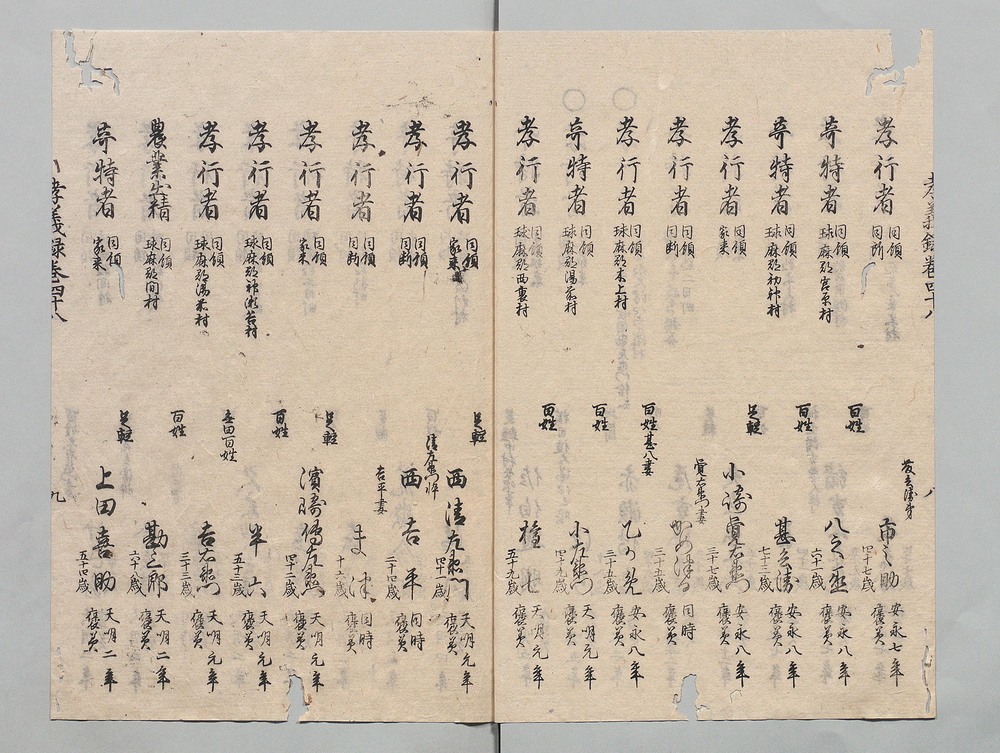 孝義録巻四十八
八
孝行者 同領 同断
市之助 四十七歳 安永七年 褒美
奇特者 同領 球麻郡宮原村
百姓 八之丞 六十一歳 安永八年 褒美
奇特者 同領 球麻郡初神村
百姓 甚之清 七十三歳 安永八年 褒美
孝行者 同領 家来
足軽 小濱覚右衛門 三十七歳 安永八年 褒美
孝行者 同領
覚右衛門妻 三十五歳 同時 褒美
孝行者 同領 球麻郡木上村
百姓甚八妻 三十五歳 安永八年 褒美
奇特者 同領 球麻郡湯前村
百姓 小左衛門 四十九歳 天明元年 褒美
孝行者 同領 球麻郡西裏村
百姓 権七 五十九歳 天明元年 褒美
孝行者 同領 家来
足軽 西清左衛門 四十一歳 天明元年 褒美
孝行者 同領 同断
清左衛門忰 西吉平 二十四歳 同時 褒美
孝行者 同領 同断
吉平妻 まつ 十六歳 同時 褒美
孝行者 同領 家来
足軽 濱崎傳左衛門 四十二歳 天明元年 褒美
孝行者 同領 球麻郡神瀬谷村
百姓 半六 五十三歳 天明元年 褒美
孝行者 同領 球麻郡湯前村
百姓 吉右衛門 三十三歳 天明元年 褒美
農業出精 同領 球麻郡間村
百姓 勘之郎 六十歳 天明二年 褒美
奇特者 同領 家来
足軽 上田喜助 五十四歳 天明二年 褒美
孝義録巻四十八
九